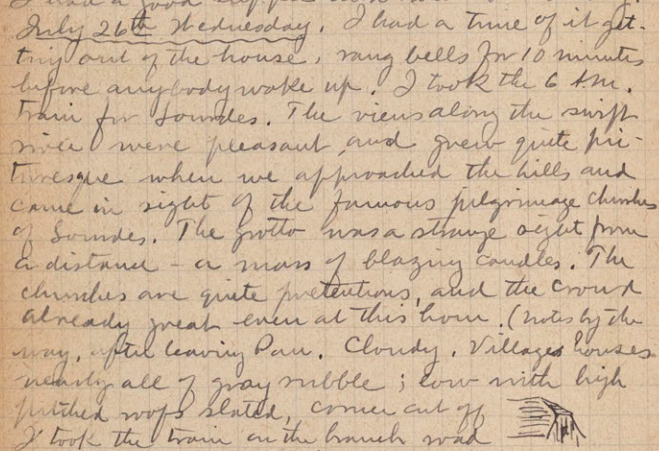 I had a good supper
July 26th Wednesday. I had a time of it get-
ting out of the house, rang bells for 10 minutes
before anybody woke up. I took the 6 A.M.
train for Lourdes. The views along the swift
river were pleasant and grew quite pic-
turesque when we approached the hills and
came in sight of the famous pilgrimage churches
of Lourdes. The grotto was a strange sight from
a distance – a mass of blazing candles. The
churches are quite pretentious, and the crowd
already great even at this hour. (Notes by the
way, after leaving Pau. Cloudy. Villages houses
nearly all of gray rubble; low with high
pitched roofs slated, corner cut off
I took the train on the branch road